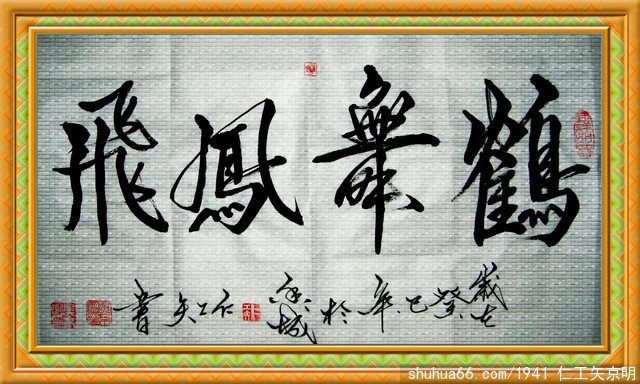 鶴舞鳳飛
歲在癸巳年於
城仁工矢書
shuhua66.com/1941 仁工矢京明